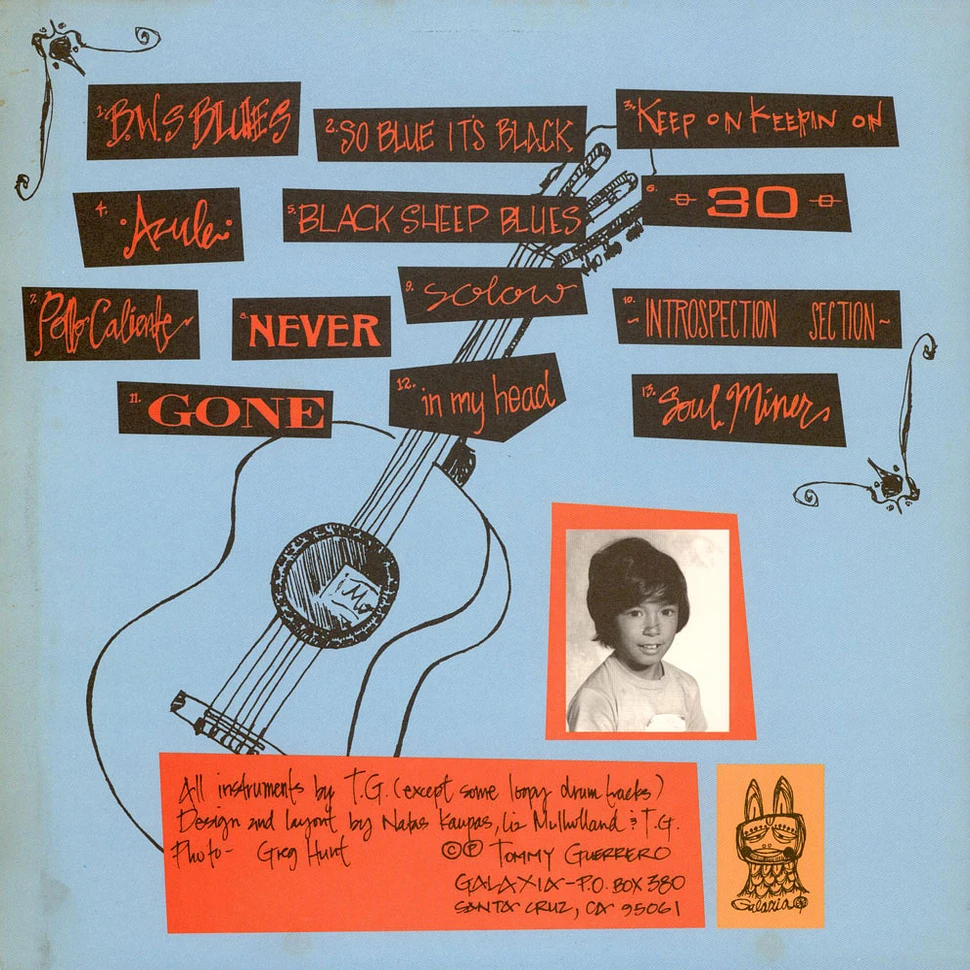 1. B.W.S BLUES
2. SO BLUE IT'S BLACK
3. KEEP ON KEEPIN ON
4. Azule
5. BLACK SHEEP BLUES
6. -o- 30 -o-
7. Pollo Caliente
8. NEVER
9. Solow
10. ~INTROSPECTION SECTION~
11. GONE
12. in my head
13. Soul Miner
All instruments by T.G. (except some loopy drum tracks)
Design and layout by Natas Kaupas, Liz Mullholland & T.G.
Photo - Greg Hunt
©℗ TOMMY GUERRERO
GALAXIA - P.O. BOX 380
SANTA CRUZ, CA 95061
Galaxia